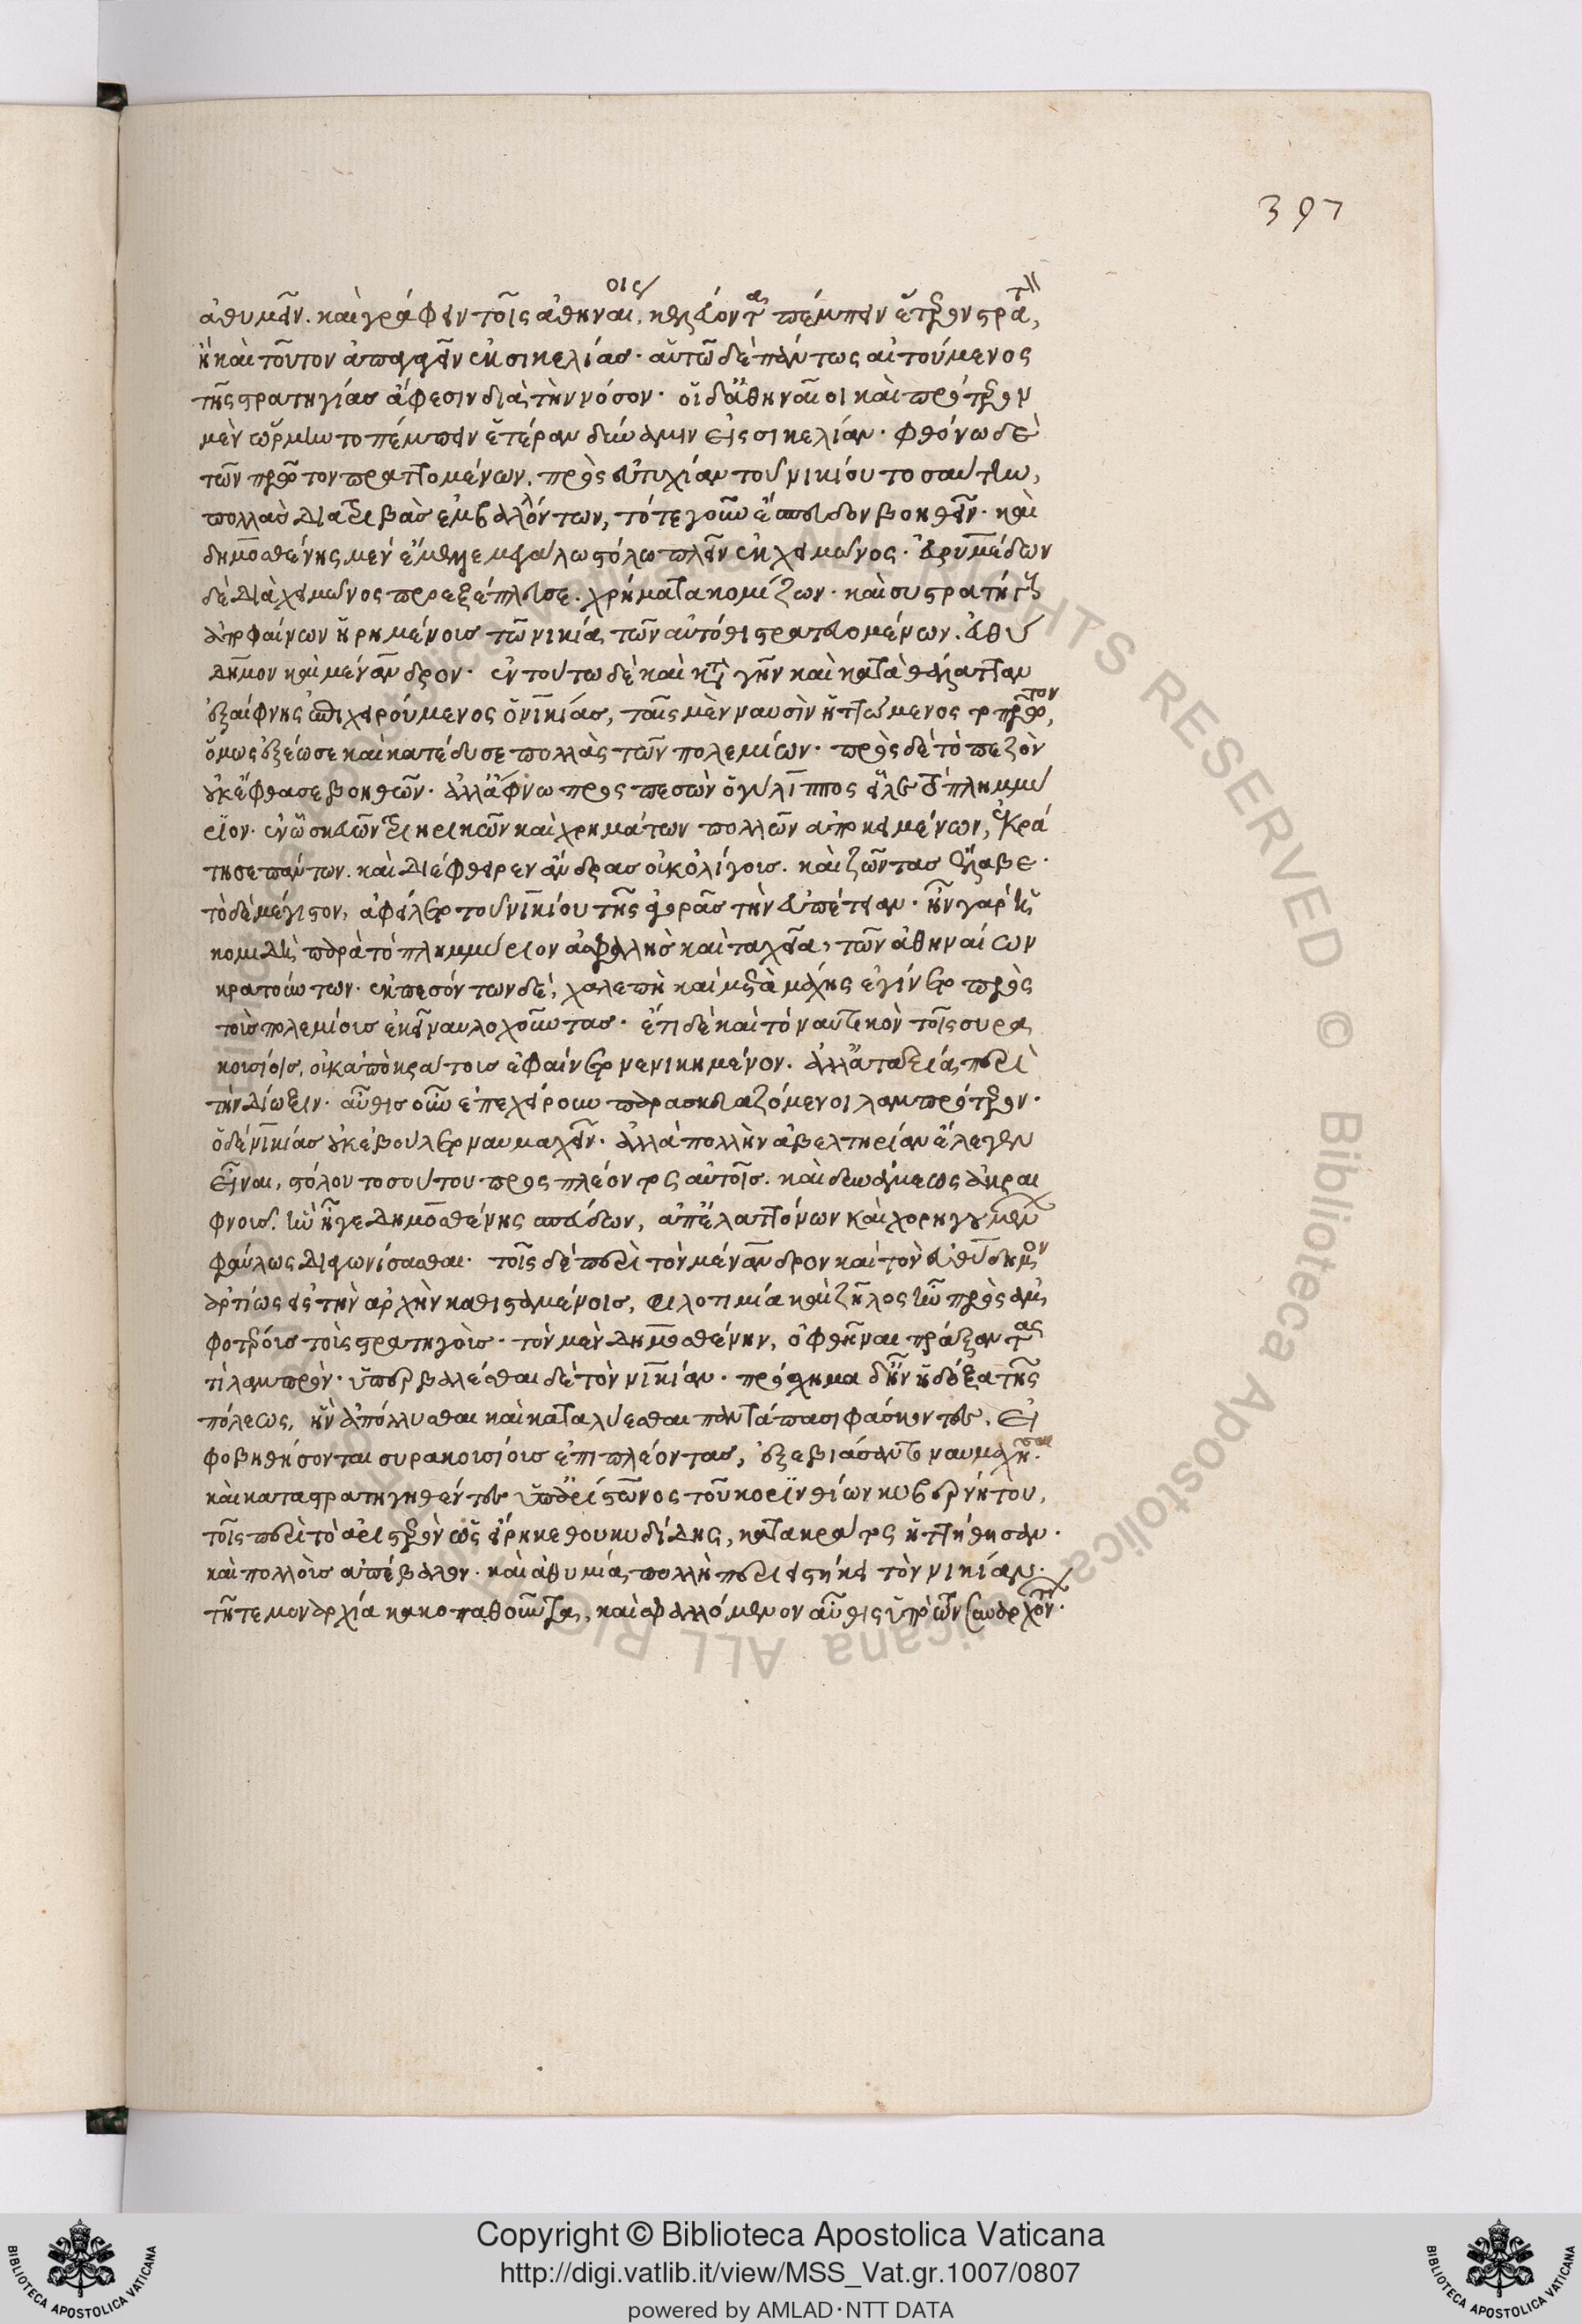 397
ἀθυμεῖν. καὶ γράφειν τοῖς ἀθηναίοις, κελεύοντας πέμπειν ἕτερον στρατ
ἢ καὶ τοῦτον ἀπαγαγεῖν ἐκ σικελίας. αὐτῶ δὲ πάντως αἰτούμενος
τῆς στρατηγίας ἄφεσιν διὰ τὴν νόσον. οἱ δ' ἀθηναῖοι καὶ πρότερον
μὲν ὥρμηντο πέμπειν ἑτέραν δύναμιν εἰς σικελίαν. φθόνω δὲ
τῶν πρῶτον πραττομένων, πρὸς εὐτυχίαν τοῦ νικίου τοσαύτην,
πολλὰς διατριβὰς ἐμβαλόντων, τότε γοῦν ἔσπευδον βοηθεῖν. καὶ
δημοσθένης μὲν ἔμελλε μεγάλω στόλω πλεῖν ἐκ χειμῶνος. εὐρυμέδων
δὲ διὰ χειμῶνος προεξέπλευσε. χρήματα κομίζων. καὶ συστρατήγους
ἀποφαίνων ἡρημένους τῶ νικία, τῶν αὐτόθι στρατευομένων. εὐθύ
δημον καὶ μένανδρον. ἐν τούτω δὲ καὶ κατὰ γῆν καὶ κατὰ θάλατταν
ἐξαίφνης ἐπιχειρούμενος ὁ νικίας, ταῖς μὲν ναυσὶν ἡττώμενος τὸ πρῶτον,
ὅμως ἐξέωσε καὶ κατέδυσε πολλὰς τῶν πολεμίων. πρὸς δὲ τὸ πεζὸν
οὐκ ἔφθασε βοηθῶν. ἀλλ' ἄφνω προσπεσὼν ὁ γύλιππος εἷλε τὸ πλημμύ
ριον. ἐν ὧ σκευῶν τριηρικῶν καὶ χρημάτων πολλῶν ἀποκειμένων, ἐκρά
τησε πάντων. καὶ διέφθειρεν ἄνδρας οὐκ ὀλίγους. καὶ ζῶντας ἔλαβε.
τὸ δὲ μέγιστον, ἀφείλετο τοῦ νικίου τῆς ἀγορᾶς τὴν εὐπέτειαν. ἦν γὰρ ἡ
κομιδὴ παρὰ τὸ πλημμύριον ἀσφαλὴς καὶ ταχεῖα, τῶν ἀθηναίων
κρατούντων. ἐκπεσόντων δὲ, χαλεπὴ καὶ μετὰ μάχης ἐγίνετο πρὸς
τοὺς πολεμίους ἐκεῖ ναυλοχοῦντας. ἔτι δὲ καὶ τὸ ναυτικὸν τοῖς συρα
κουσίοις, οὐκ ἀπὸ κράτους ἐφαίνετο νενικημένον. ἀλλ' ἀταξία περὶ
τὴν δίωξιν. αὖθις οὖν ἐπεχείρουν παρασκευαζόμενοι λαμπρότερον.
ὁ δὲ νικίας οὐκ ἐβούλετο ναυμαχεῖν. ἀλλὰ πολλὴν ἀβελτηρίαν ἔλεγεν
εἶναι, στόλου τοσούτου προσπλέοντος αὐτοῖς. καὶ δυνάμεως ἀκραι
φνοῦς. ἣν ἦγε δημοσθένης σπεύδων, ἀπ' ἐλαττόνων καὶ χορηγουμένων
φαύλως διαγωνίσασθαι. τοῖς δὲ περὶ τὸν μένανδρον καὶ τὸν εὐθύδημον
ἀρτίως εἰς τὴν ἀρχὴν καθισταμένοις, φιλοτιμία καὶ ζῆλος ἦν πρὸς ἀμ
φοτέρους τοὺς στρατηγοὺς. τὸν μὲν δημοσθένην, ὀφθῆναι πράξαντας
τι λαμπρὸν. ὑπερβαλέσθαι δὲ τὸν νικίαν. πρόσχημα δ' ἦν ἡ δόξα τῆς
πόλεως, ἣν ἀπόλλυσθαι καὶ καταλύεσθαι παντάπασι φάσκοντες, εἰ
φοβηθήσονται συρακουσίους ἐπιπλέοντας, ἐξεβιάσαντο ναυμαχῆσαι.
καὶ καταστρατηγηθέντες ὑπ' ἀρίστωνος τοῦ κορινθίων κυβερνήτου,
τοῖς περὶ τὸ ἄριστον ὡς εἴρηκε θουκυδίδης, κατὰ κράτος ἡττήθησαν.
καὶ πολλοὺς ἀπέβαλον. καὶ ἀθυμία, πολλὴ περιειστήκει τὸν νικίαν.
τῆ τε μοναρχία κακοπαθοῦντα, καὶ σφαλλόμενον αὖθις ὑπὸ τῶν συναρχόντων.